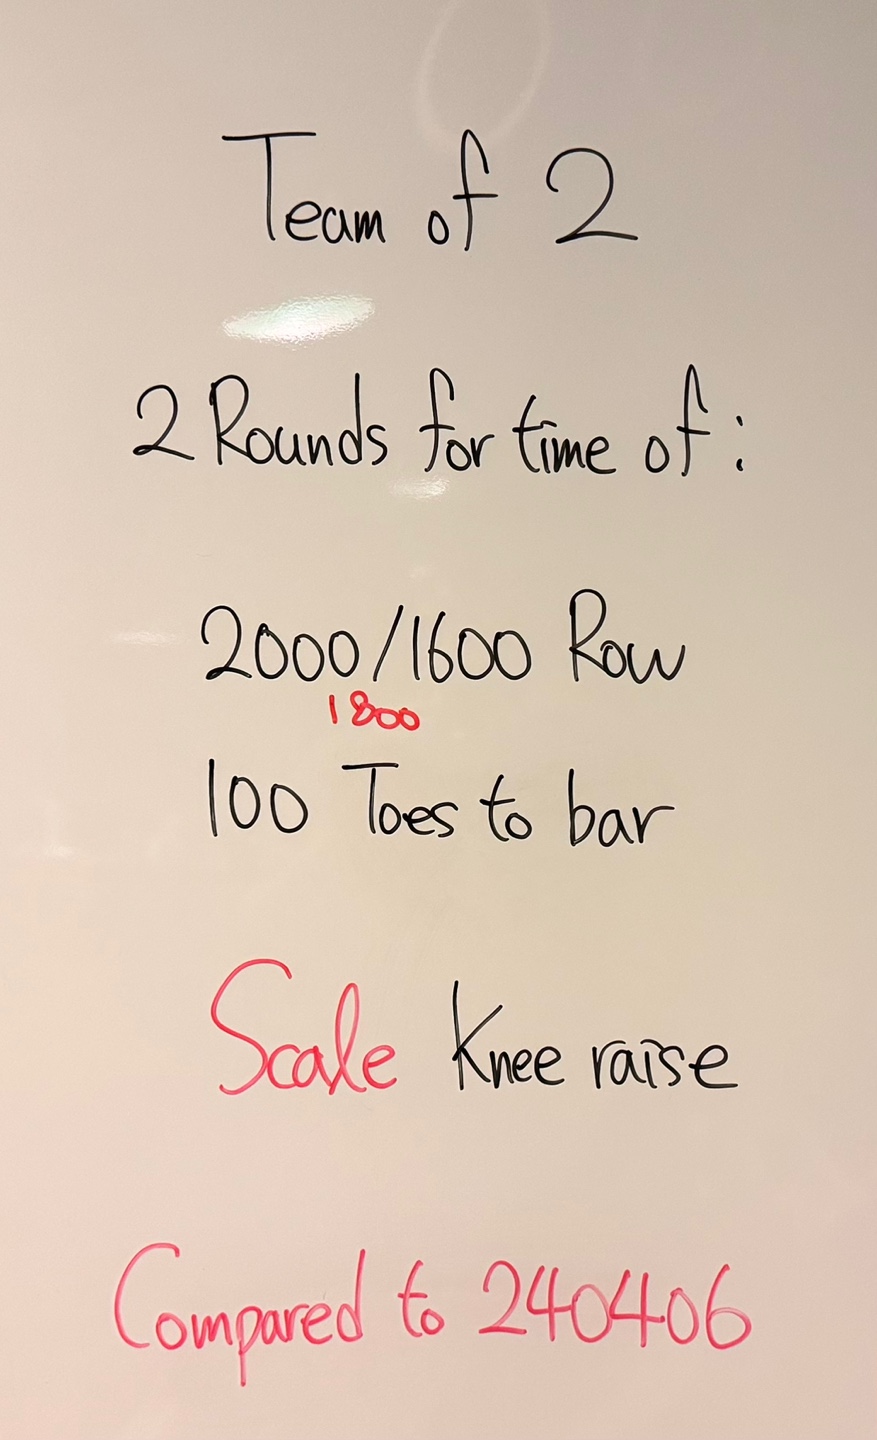 Team of 2
2 Rounds for time of :
2000/1600 Row
1800
100 Toes to bar
Scale Knee raise
Compared to 240406